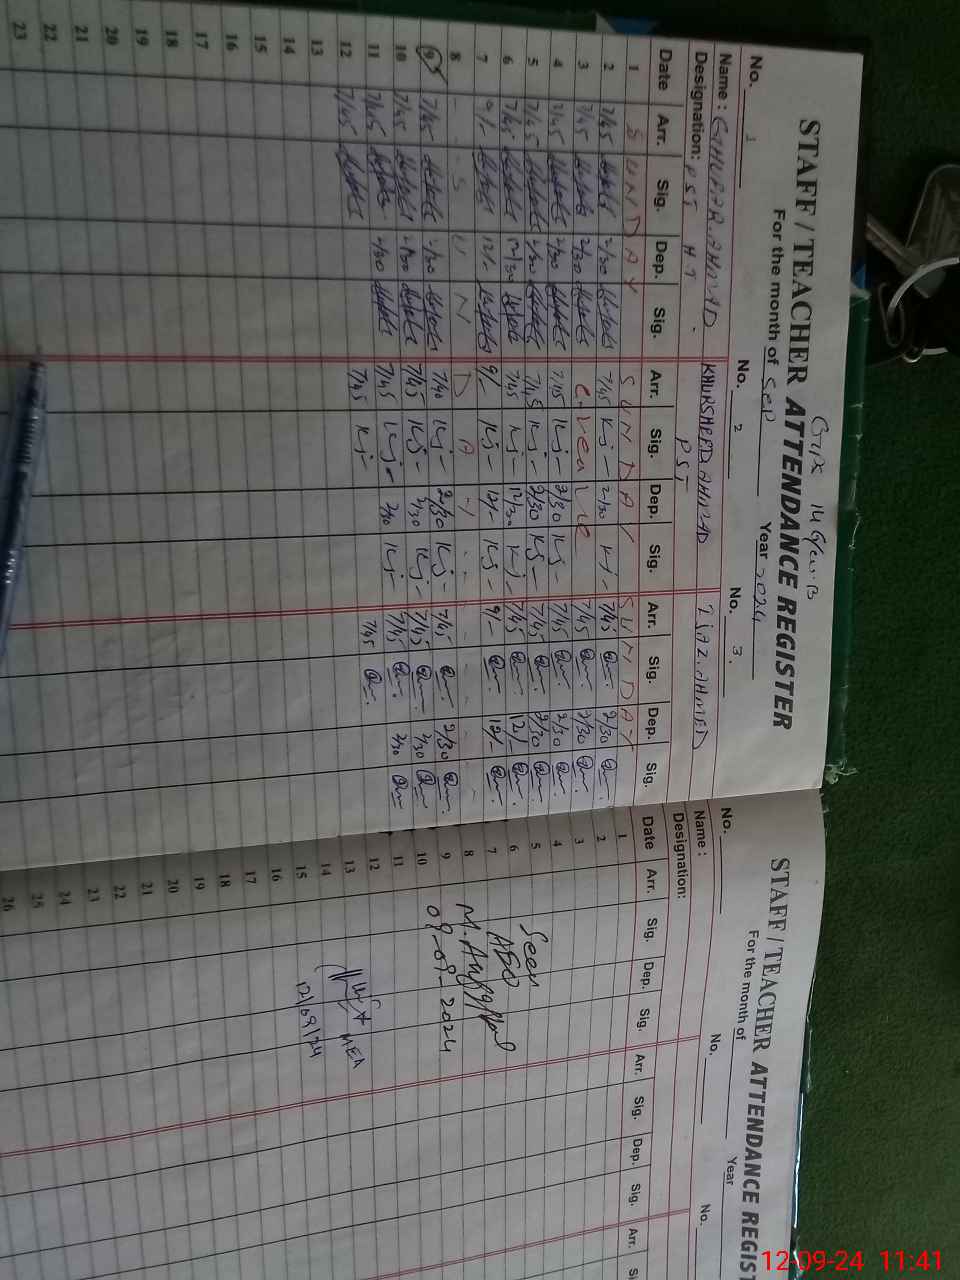 STAFF / TEACHER ATTENDANCE REGISTER
For the month of Sep Year 2024
No. 1 No. 2 No. 3.
Name : GHUFAR.AHMAD. KHURSHEED.AHMAD IJAZ.AHMED
Designation: PST HT PST
Date Arr. Sig. Dep. Sig. Arr. Sig. Dep. Sig. Arr. Sig. Dep. Sig.
1 SUNDAY SUNDAY SUNDAY
2 7/45 2/30 7/45 2/30 7/45 2/30
3 7/45 2/30 C.Leave 7/45 2/30
4 7/45 2/30 7/45 2/30 7/45 2/30
5 7/45 2/30 7/45 2/30 7/45 2/30
6 7/45 12/30 7/45 12/30 7/45 12/-
7 9/- 12/- 9/- 12/- 9/- 12/-
8 - - S U N D A Y - - -
9 7/45 2/30 7/40 2/30 7/45 2/30
10 7/45 2/30 7/45 2/30 7/45 2/30
11 7/45 2/30 7/45 2/30 7/45 2/30
12 7/45 7/45 7/45
13
14
15
16
17
18
19
20
21
22
23
STAFF / TEACHER ATTENDANCE REGIST
For the month of Year
No. No. No.
Name :
Designation:
Date Arr. Sig. Dep. Sig. Arr. Sig. Dep. Sig. Arr. Si
1
2
3
4
5 Seen
6 ASO
7
8
9 09-09-2024
10
11
12
13 MEA
14
15 12/09/24
16
17
18
19
20
21
22
23
24
25
26
12-09-24 11:41